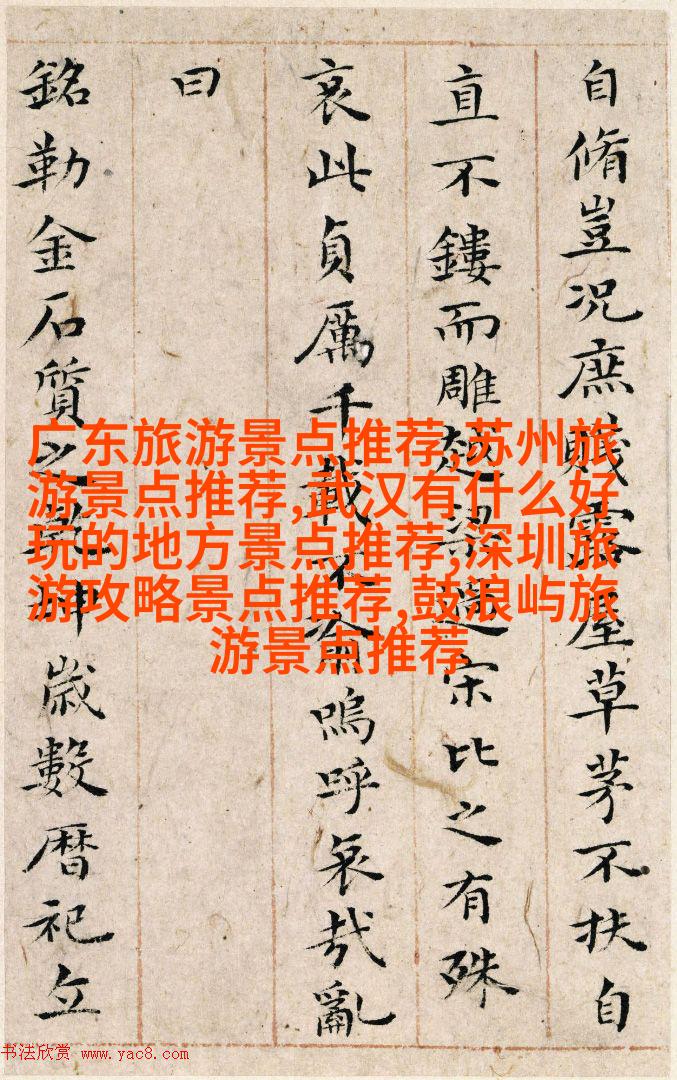 自脩豈況庶賤露屋草茅不扶自
直不鏤而雕越梁過宋比之有殊
哀此貞厲千載不渝嗚呼哀哉亂
曰
銘勒金石質之乾坤歳數曆祀立
广东旅游景点推荐,苏州旅
游景点推荐,武汉有什么好
玩的地方景点推荐,深圳旅
游攻略景点推荐,鼓浪屿旅
游景点推荐
书法欣赏 www.yac8.com